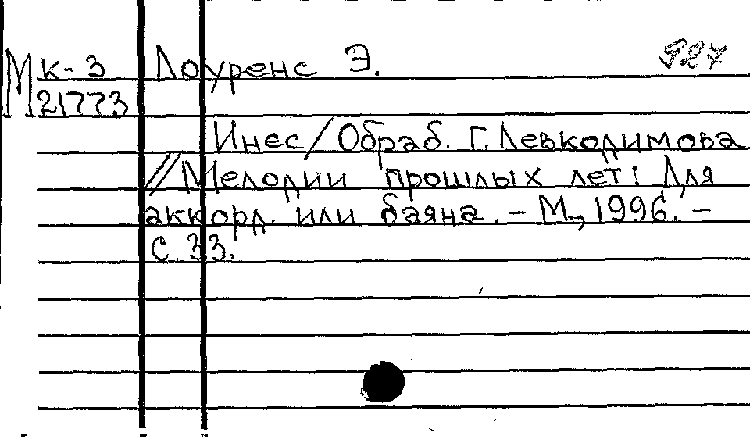 Мк-3 Лоуренс Э. 927
21773
Инес/Обраб. Г. Левкодимова
//Мелодии прошлых лет: Для
аккорд. или баяна. - М., 1996. -
С 33.